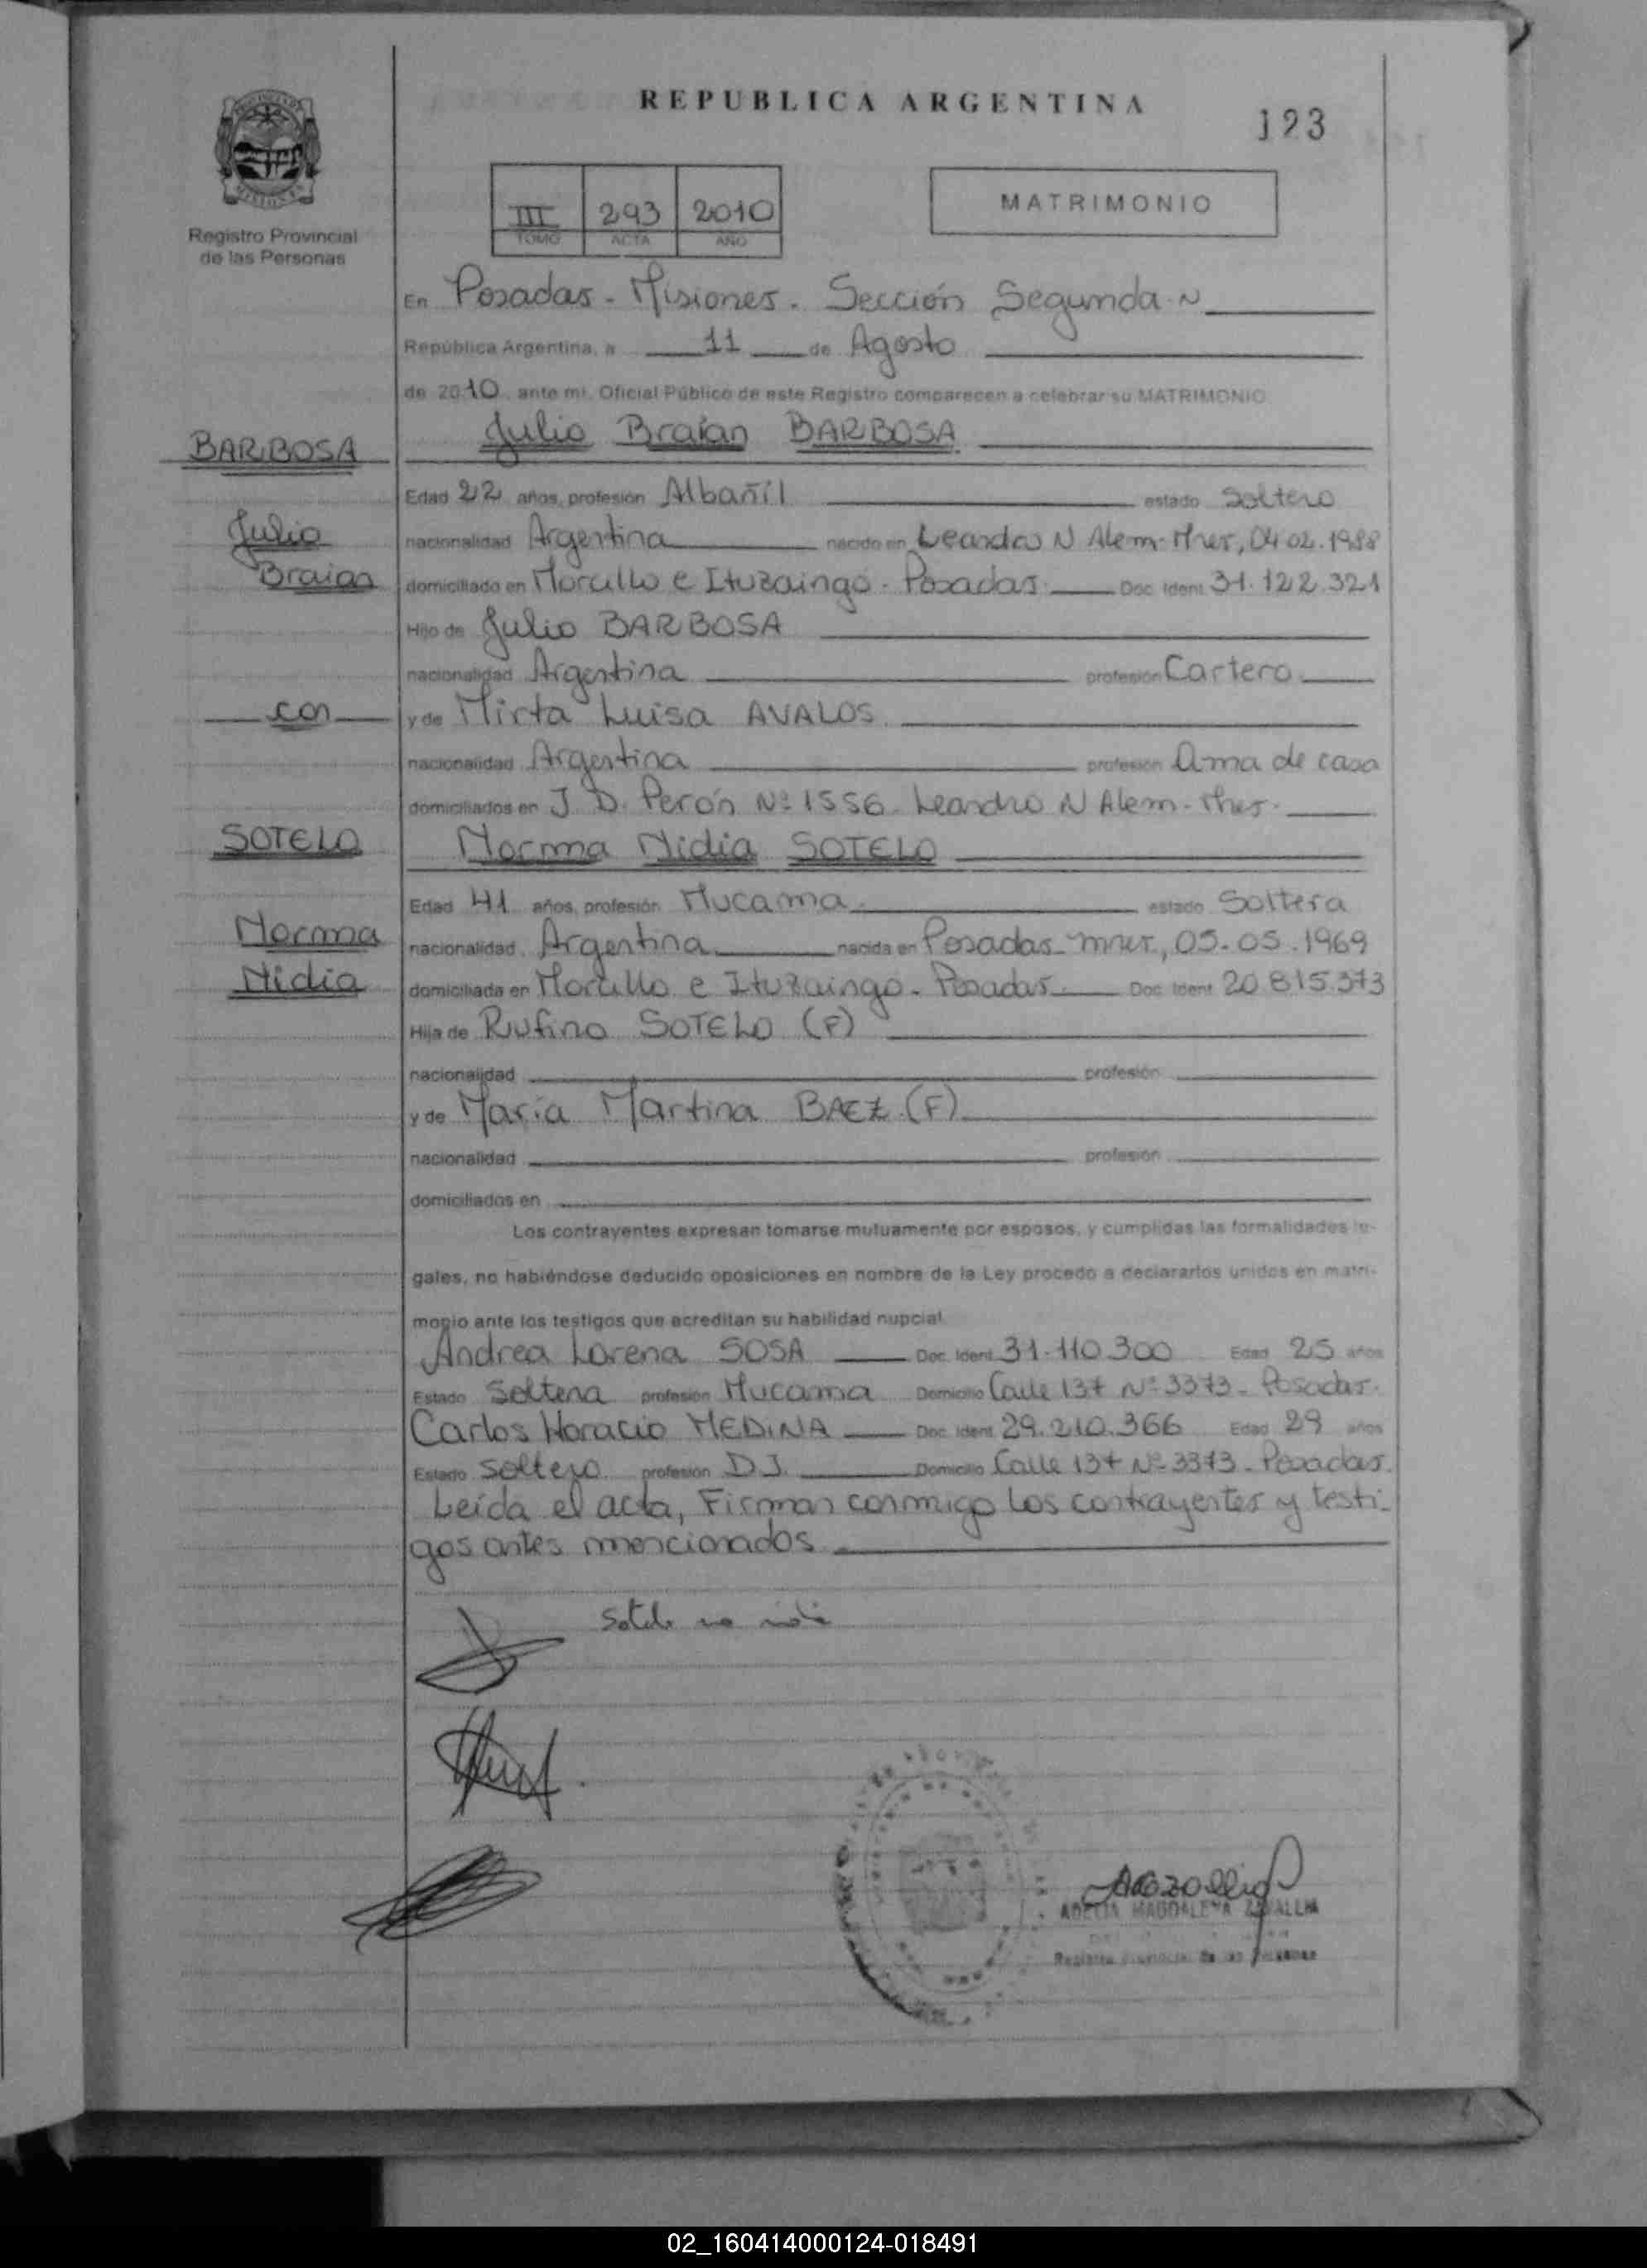 REPUBLICA ARGENTINA
123
III 293 2010
TOMO ACTA AÑO
MATRIMONIO
Registro Provincial
de las Personas
En Posadas - Misiones. Sección Segunda
República Argentina, a 11 de Agosto
de 2010, ante mi, Oficial Público de este Registro comparecen a celebrar su MATRIMONIO
BARBOSA
Julio Braian BARBOSA
Edad 22 años, profesión Albañil estado Soltero
Julio
Braian
nacionalidad Argentina nacido en Leandro N Alem-Mnes, 04.02.1988
domiciliado en e Ituzaingo - Posadas Doc. Ident. 31.122.321
Hijo de Julio BARBOSA
nacionalidad Argentina profesión Cartero
con
y de Mirta Luisa AVALOS
nacionalidad Argentina profesión Ama de casa
domiciliados en J. D. Perón Nº 1556 - Leandro N Alem - Mnes.
SOTELO
Norma Nidia SOTELO
Edad 41 años, profesión Mucama estado Soltera
Norma
Nidia
nacionalidad Argentina nacida en Posadas - mnes, 05-05.1969
domiciliada en e Ituzaingo - Posadas Doc. Ident. 20.815.373
Hija de Rufino SOTELO (F)
nacionalidad profesión
y de María Martina BAEZ (F)
nacionalidad profesión
domiciliados en
Los contrayentes expresan tomarse mutuamente por esposos, y cumplidas las formalidades le-
gales, no habiéndose deducido oposiciones en nombre de la Ley procedo a declararlos unidos en matri-
monio ante los testigos que acreditan su habilidad nupcial
Andrea Lorena SOSA Doc. Ident. 31.110.300 Edad 25 años
Estado Soltera profesión Mucama Domicilio Calle 137 Nº 3373 - Posadas.
Carlos Horacio MEDINA Doc. Ident. 29.210.366 Edad 29 años
Estado Soltero profesión DJ. Domicilio Calle 137 Nº 3373 - Posadas.
Leída el acta, Firman conmigo los contrayentes y testi-
gos antes mencionados
ADELIA MAGDALENA ZAVALLIA
Registro Provincial de las Personas
02_160414000124-018491